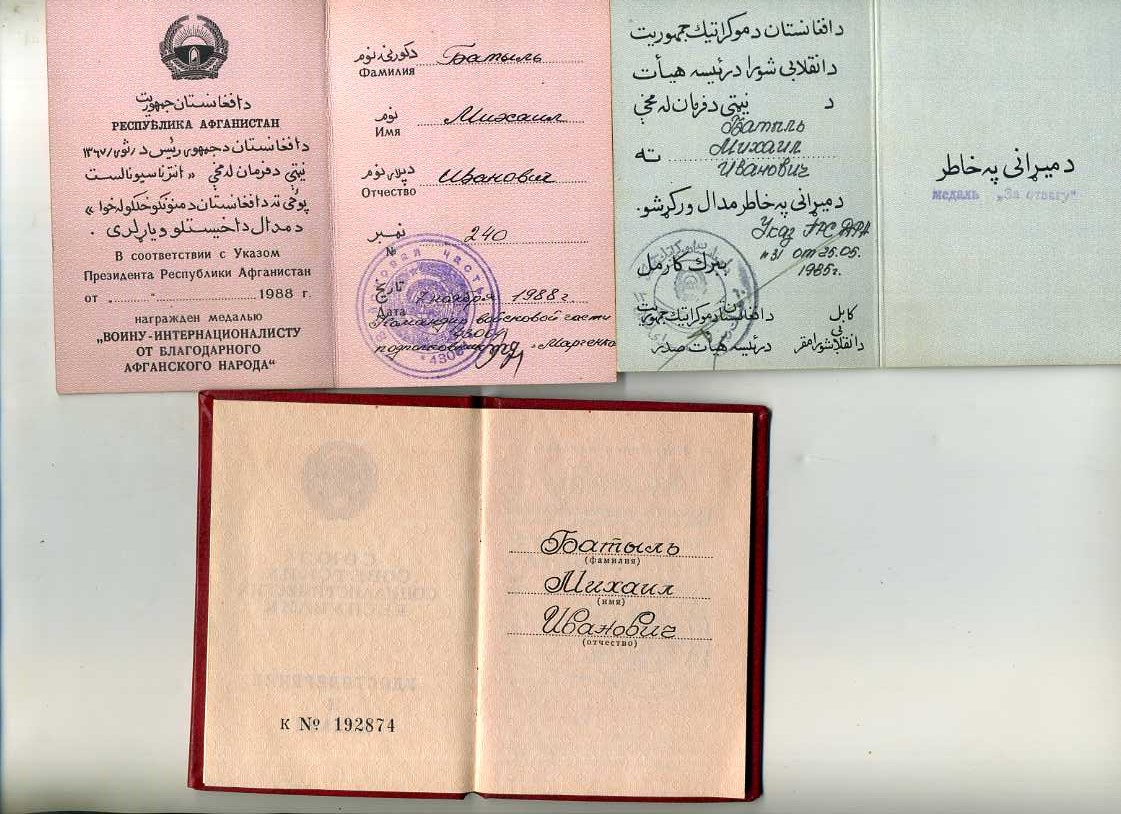 د افغانستان جمهوریت
РЕСПУБЛИКА АФГАНИСТАН
د افغانستان د جمهور رئیس د ۱۳۶۷
نیټې د فرمان له مخې « انترناسیونالست
پوځي ته د افغانستان د منونکو خلکو له خوا »
د مدال د اخیستلو ویاړلری .
В соответствии с Указом
Президента Республики Афганистан
от „..........“.................... 1988 г.
награжден медалью
„ВОИНУ-ИНТЕРНАЦИОНАЛИСТУ
ОТ БЛАГОДАРНОГО
АФГАНСКОГО НАРОДА“
د کورنۍ نوم Батыль
Фамилия
نوم Михаил
Имя
د پلار نوم Иванович
Отчество
نمبر
№ 240
تاریخ
Дата 7 ноября 1988 г.
Командир войсковой части
подполковник Марченко
د افغانستان د موکراتیک جمهوریت
د انقلابي شورا د رئیسه هیأت
د نیټې د فرمان له مخې
Батыль
Михаил ته
Иванович
د میړانې په خاطر مدال ورکړشو.
Указ ПРС ДРА
№31 от 25.05.
1985г.
ببرک کارمل
کابل
د افغانستان د موکراتیک جمهوریت
د انقلابي شورا مقر
د رئیسه هیأت صدر
د میړانې په خاطر
медаль „За отвагу“
К № 192874
Батыль
(фамилия)
Михаил
(имя)
Иванович
(отчество)